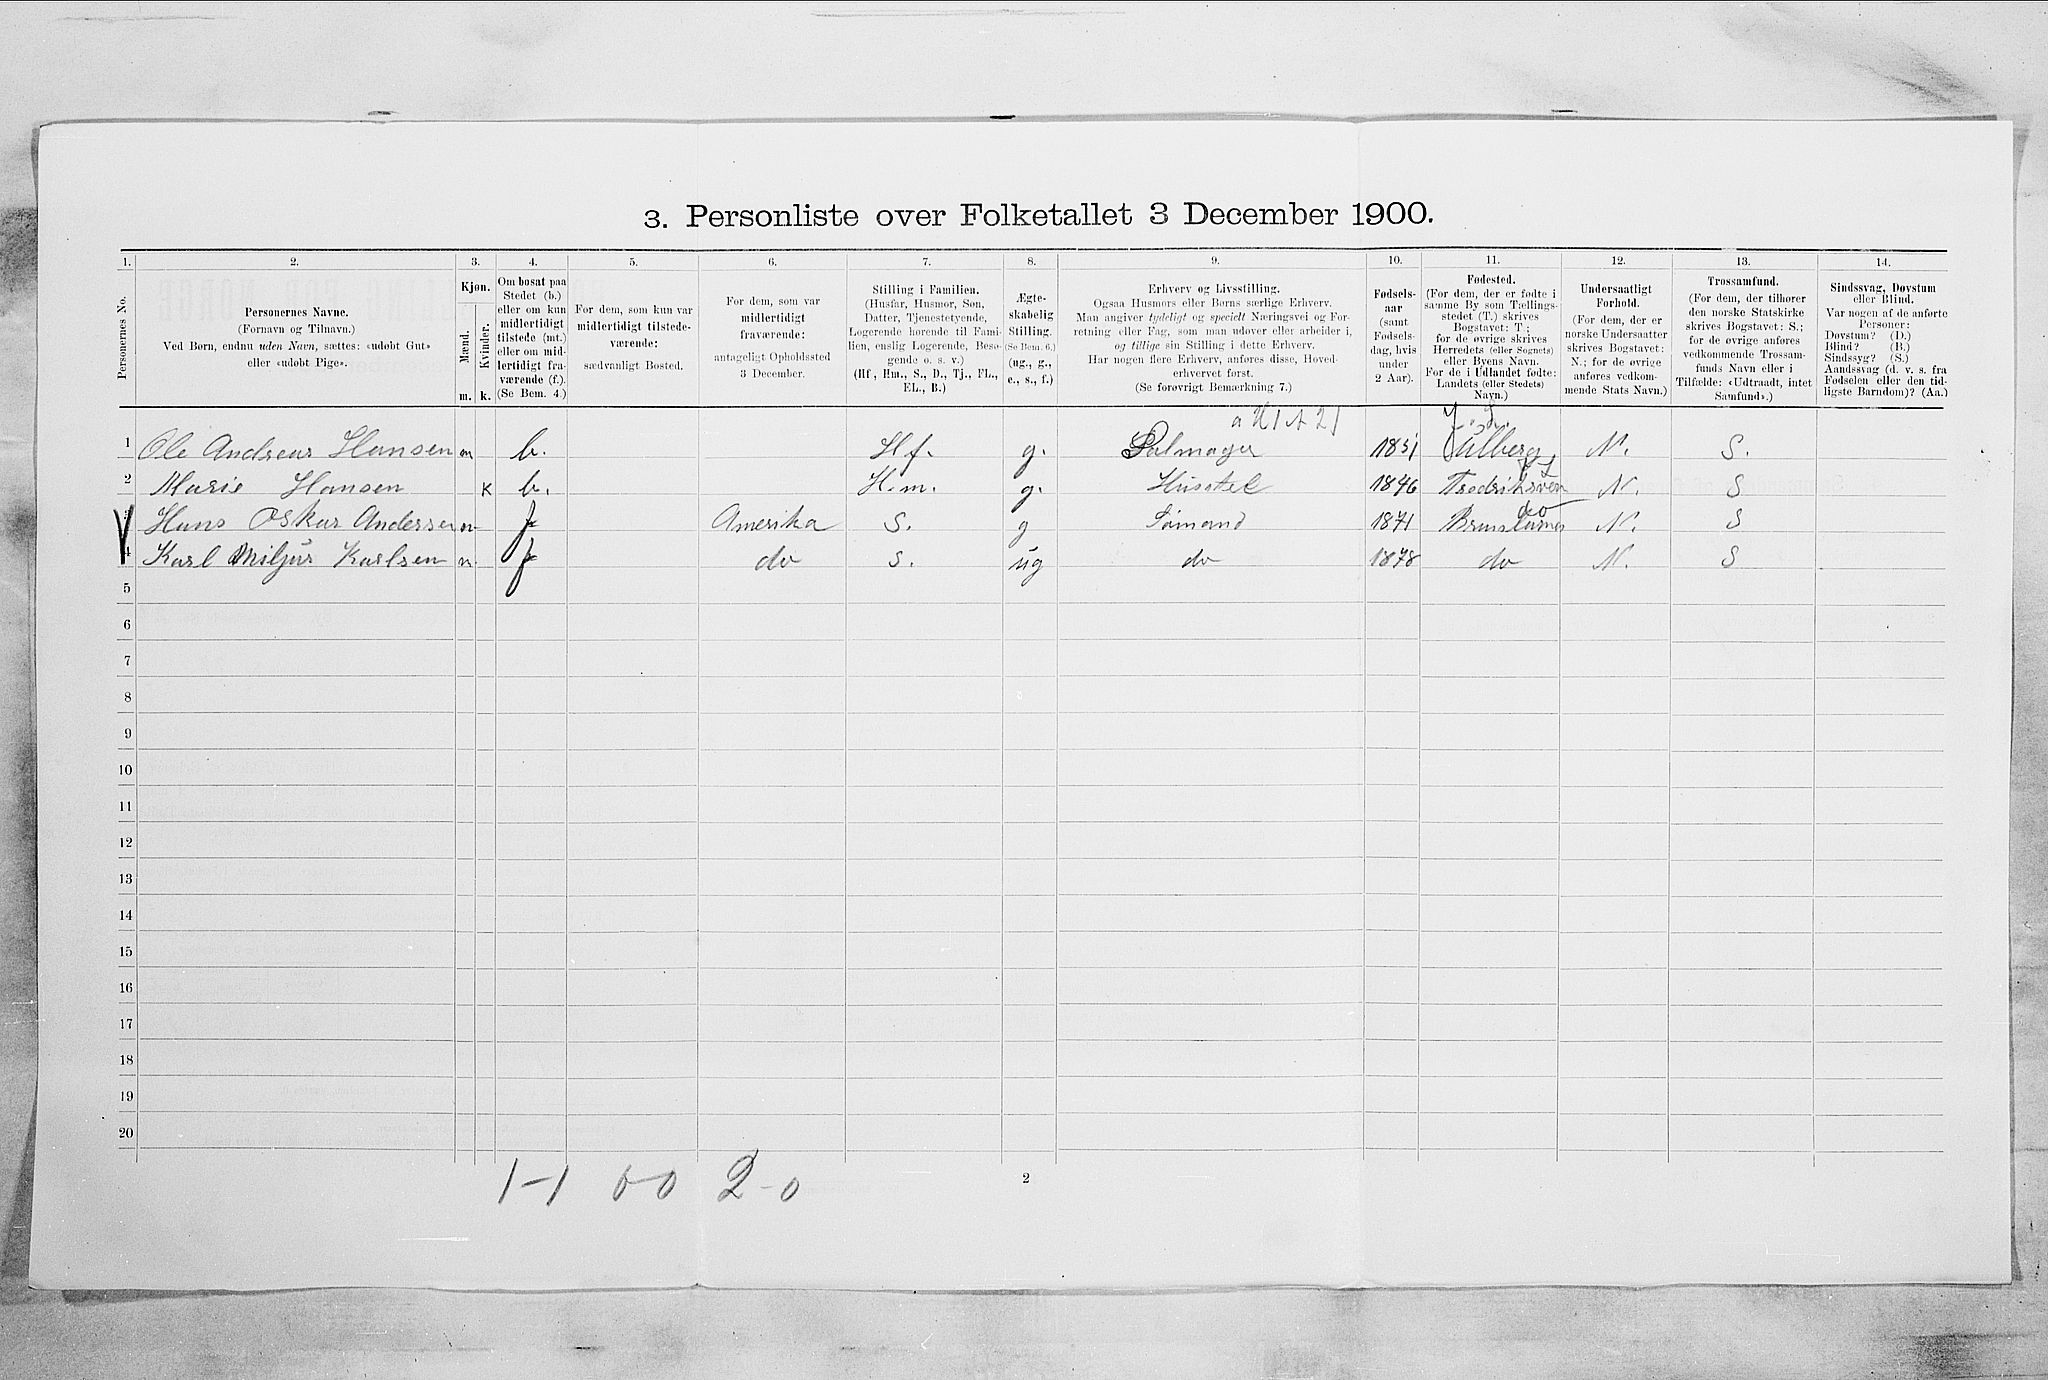 3. Personliste over Folketallet 3 December 1900.
1. 2. 3. 4. 5. 6. 7. 8. 9. 10. 11. 12. 13. 14.
Personernes No.
Personernes Navne.
(Fornavn og Tilnavn.)
Ved Børn, endnu uden Navn, sættes: «udøbt Gut»
eller «udøbt Pige».
Kjøn.
Mænd.
Kvinder.
m. k.
Om bosat paa
Stedet (b.)
eller om kun
midlertidigt
tilstede (mt.)
eller om mid-
lertidigt fra-
værende (f.).
(Se Bem. 4.)
For dem, som kun var
midlertidigt tilstede-
værende:
sædvanligt Bosted.
For dem, som var
midlertidigt
fraværende:
antageligt Opholdssted
3 December.
Stilling i Familien.
(Husfar, Husmor, Søn,
Datter, Tjenestetyende,
Logerende hørende til Fami-
lien, enslig Logerende, Besø-
gende o. s. v.)
(Hf, Hm., S., D., Tj., FL.,
EL., B.)
Ægte-
skabelig
Stilling.
(Se Bem. 6.)
(ug., g.,
e., s., f.)
Erhverv og Livsstilling.
Ogsaa Husmors eller Børns særlige Erhverv.
Man angiver tydeligt og specielt Næringsvei og For-
retning eller Fag, som man udøver eller arbeider i,
og tillige sin Stilling i dette Erhverv.
Har nogen flere Erhverv, anføres disse, Hoved-
erhvervet først.
(Se forøvrigt Bemærkning 7.)
Fødsels-
aar
(samt
Fødsels-
dag, hvis
under
2 Aar).
Fødested.
(For dem, der er fødte i
samme By som Tællings-
stedet (T.) skrives
Bogstavet: T.;
for de øvrige skrives
Herredets (eller Sognets)
eller Byens Navn.
For de i Udlandet fødte:
Landets (eller Stedets)
Navn.)
Undersaatligt
Forhold.
(For dem, der er
norske Undersaatter
skrives Bogstavet:
N.; for de øvrige
anføres vedkom-
mende Stats Navn.)
Trossamfund.
(For dem, der tilhører
den norske Statskirke
skrives Bogstavet: S.;
for de øvrige anføres
vedkommende Trossam-
funds Navn eller i
Tilfælde: «Udtraadt, intet
Samfund».)
Sindssvag, Døvstum
eller Blind.
Var nogen af de anførte
Personer:
Døvstum? (D.)
Blind? (B.)
Sindssyg? (S.)
Aandssvag (d. v. s. fra
Fødselen eller den tid-
ligste Barndom)? (Aa.)
1 Ole Andreas Hansen m b. Hf. g. 1851 N. S.
2 Marie Hansen k b. Hm. g. Husstel 1846 N. S
3 Hans Oskar Andersen m f Amerika S. g Sømand 1871 Brunlanes N. S
4 Karl Karlsen m. f do S. ug do 1878 do N. S
5
6
7
8
9
10
11
12
13
14
15
16
17
18
19
20
1-1 0-0 2-0
2